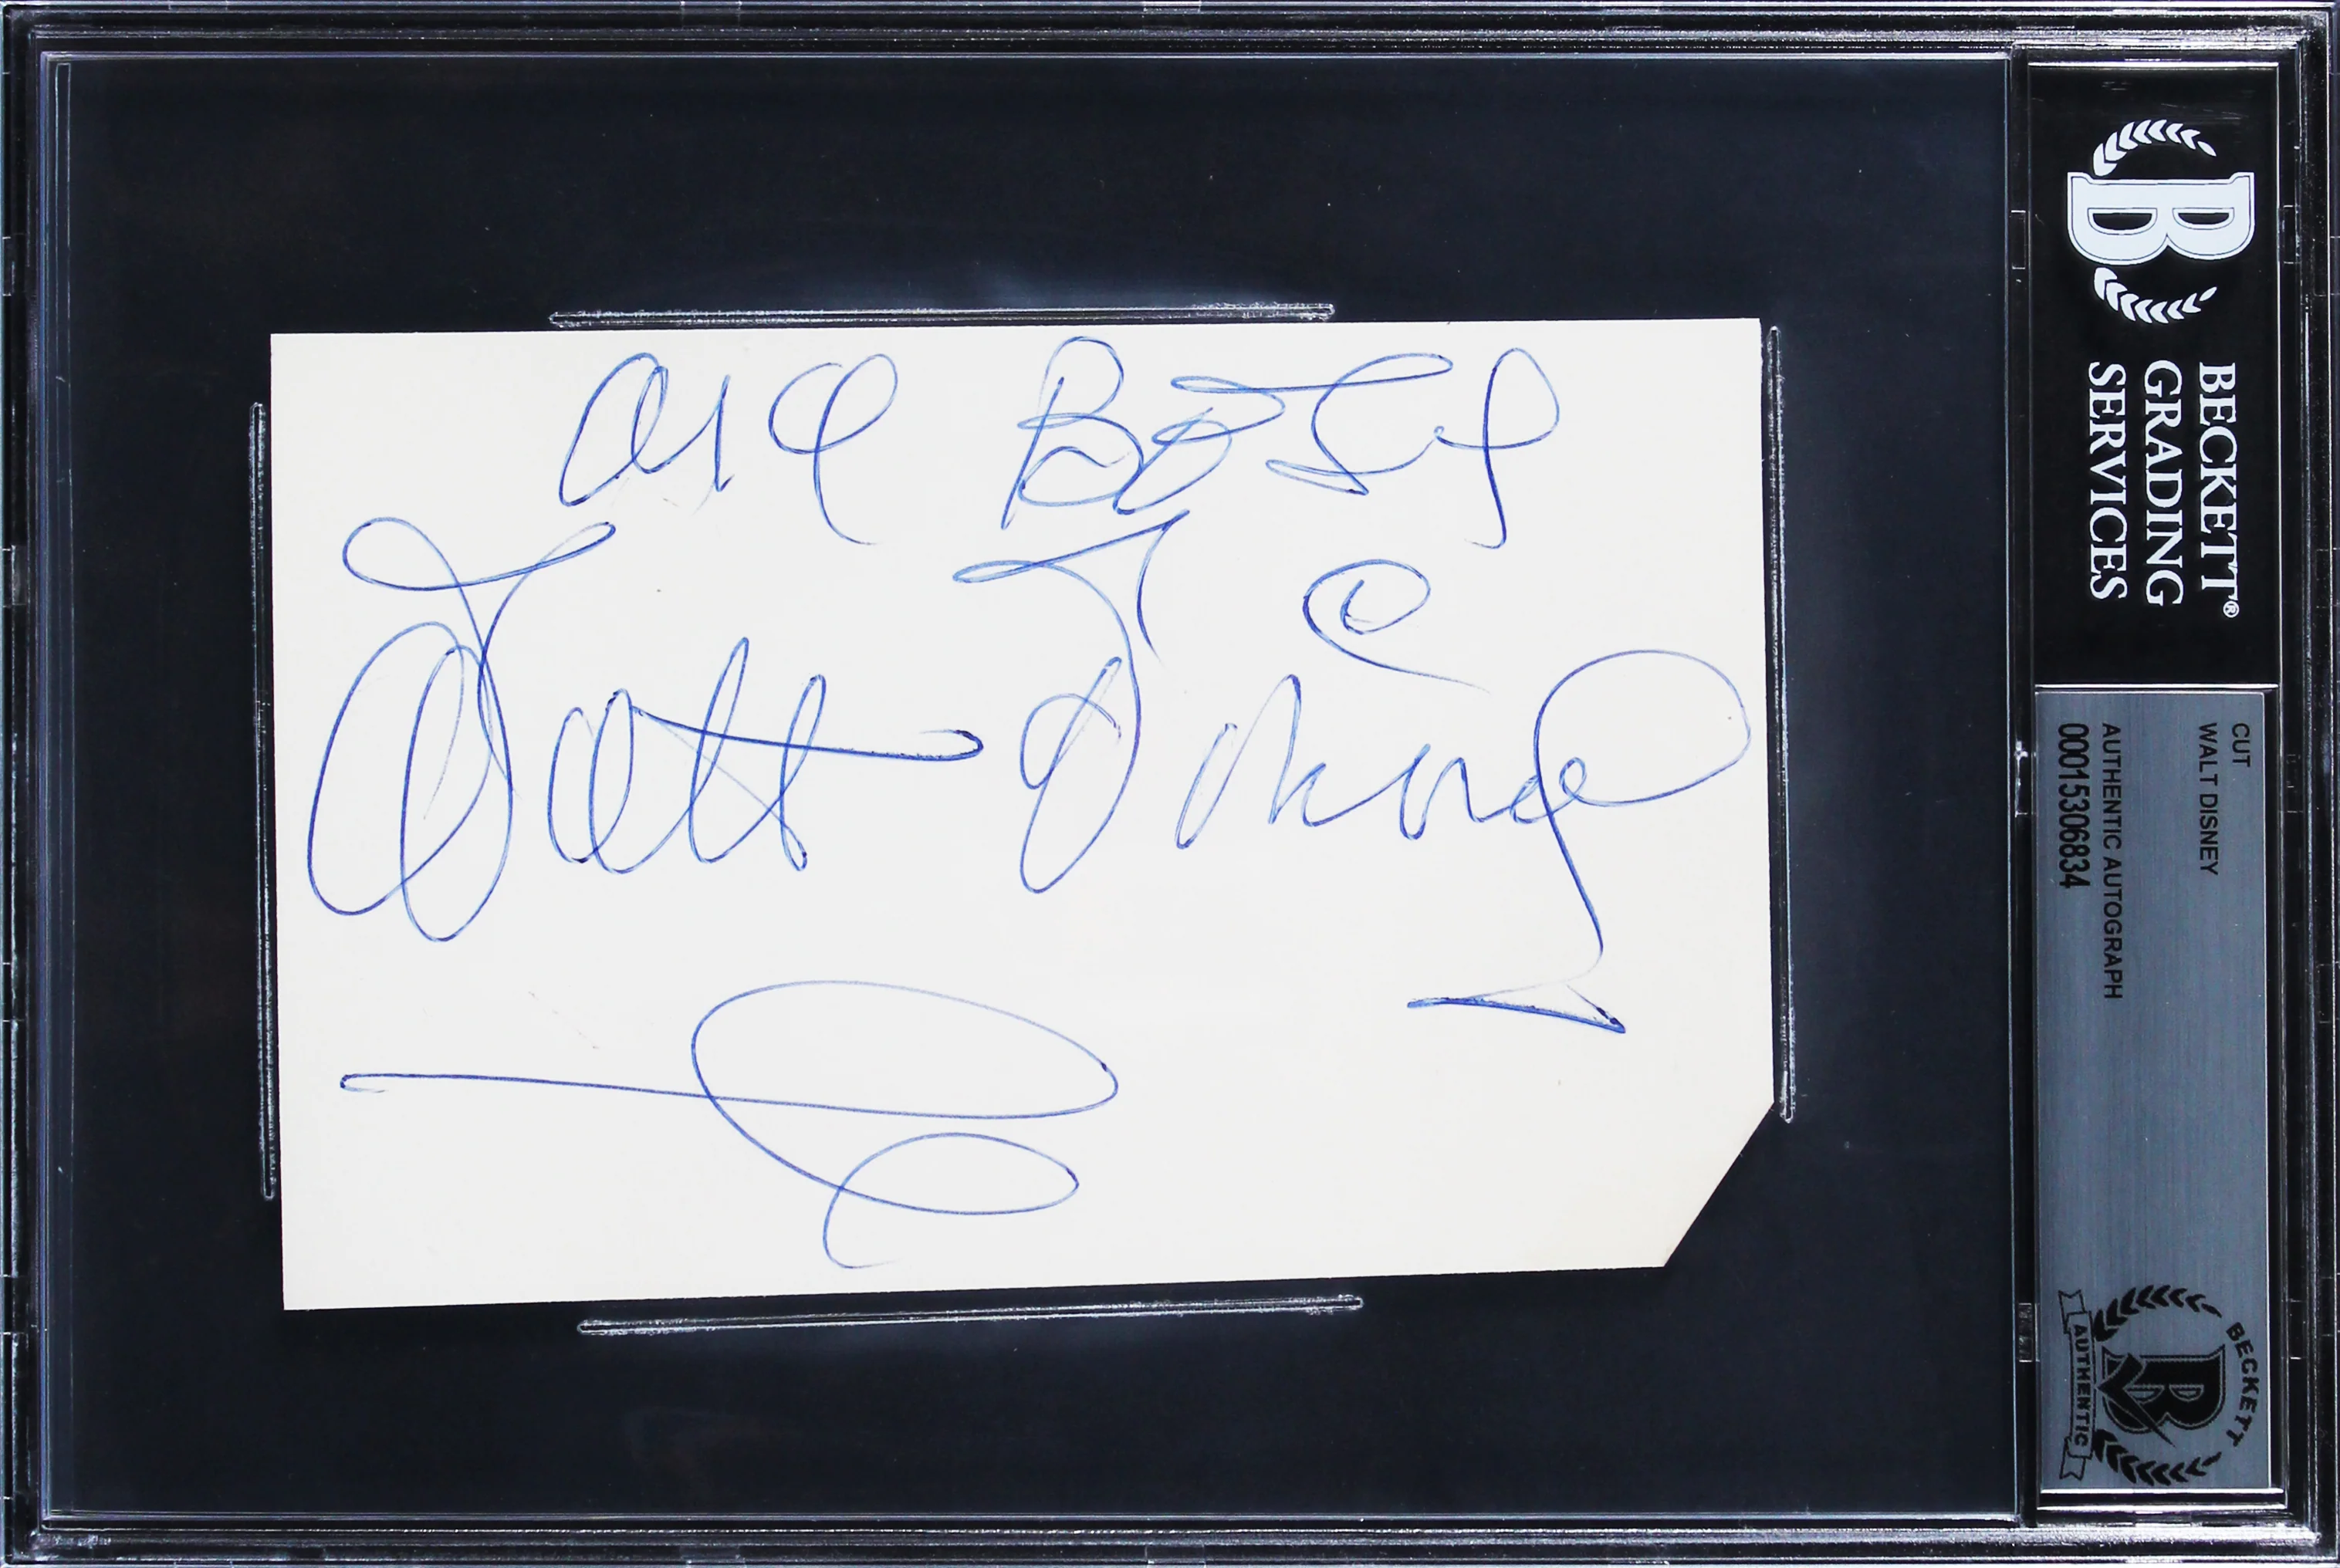 All Best
Walt Disney
BECKETT®
GRADING
SERVICES
CUT
WALT DISNEY
AUTHENTIC AUTOGRAPH
00015306834
BECKETT
B
AUTHENTIC